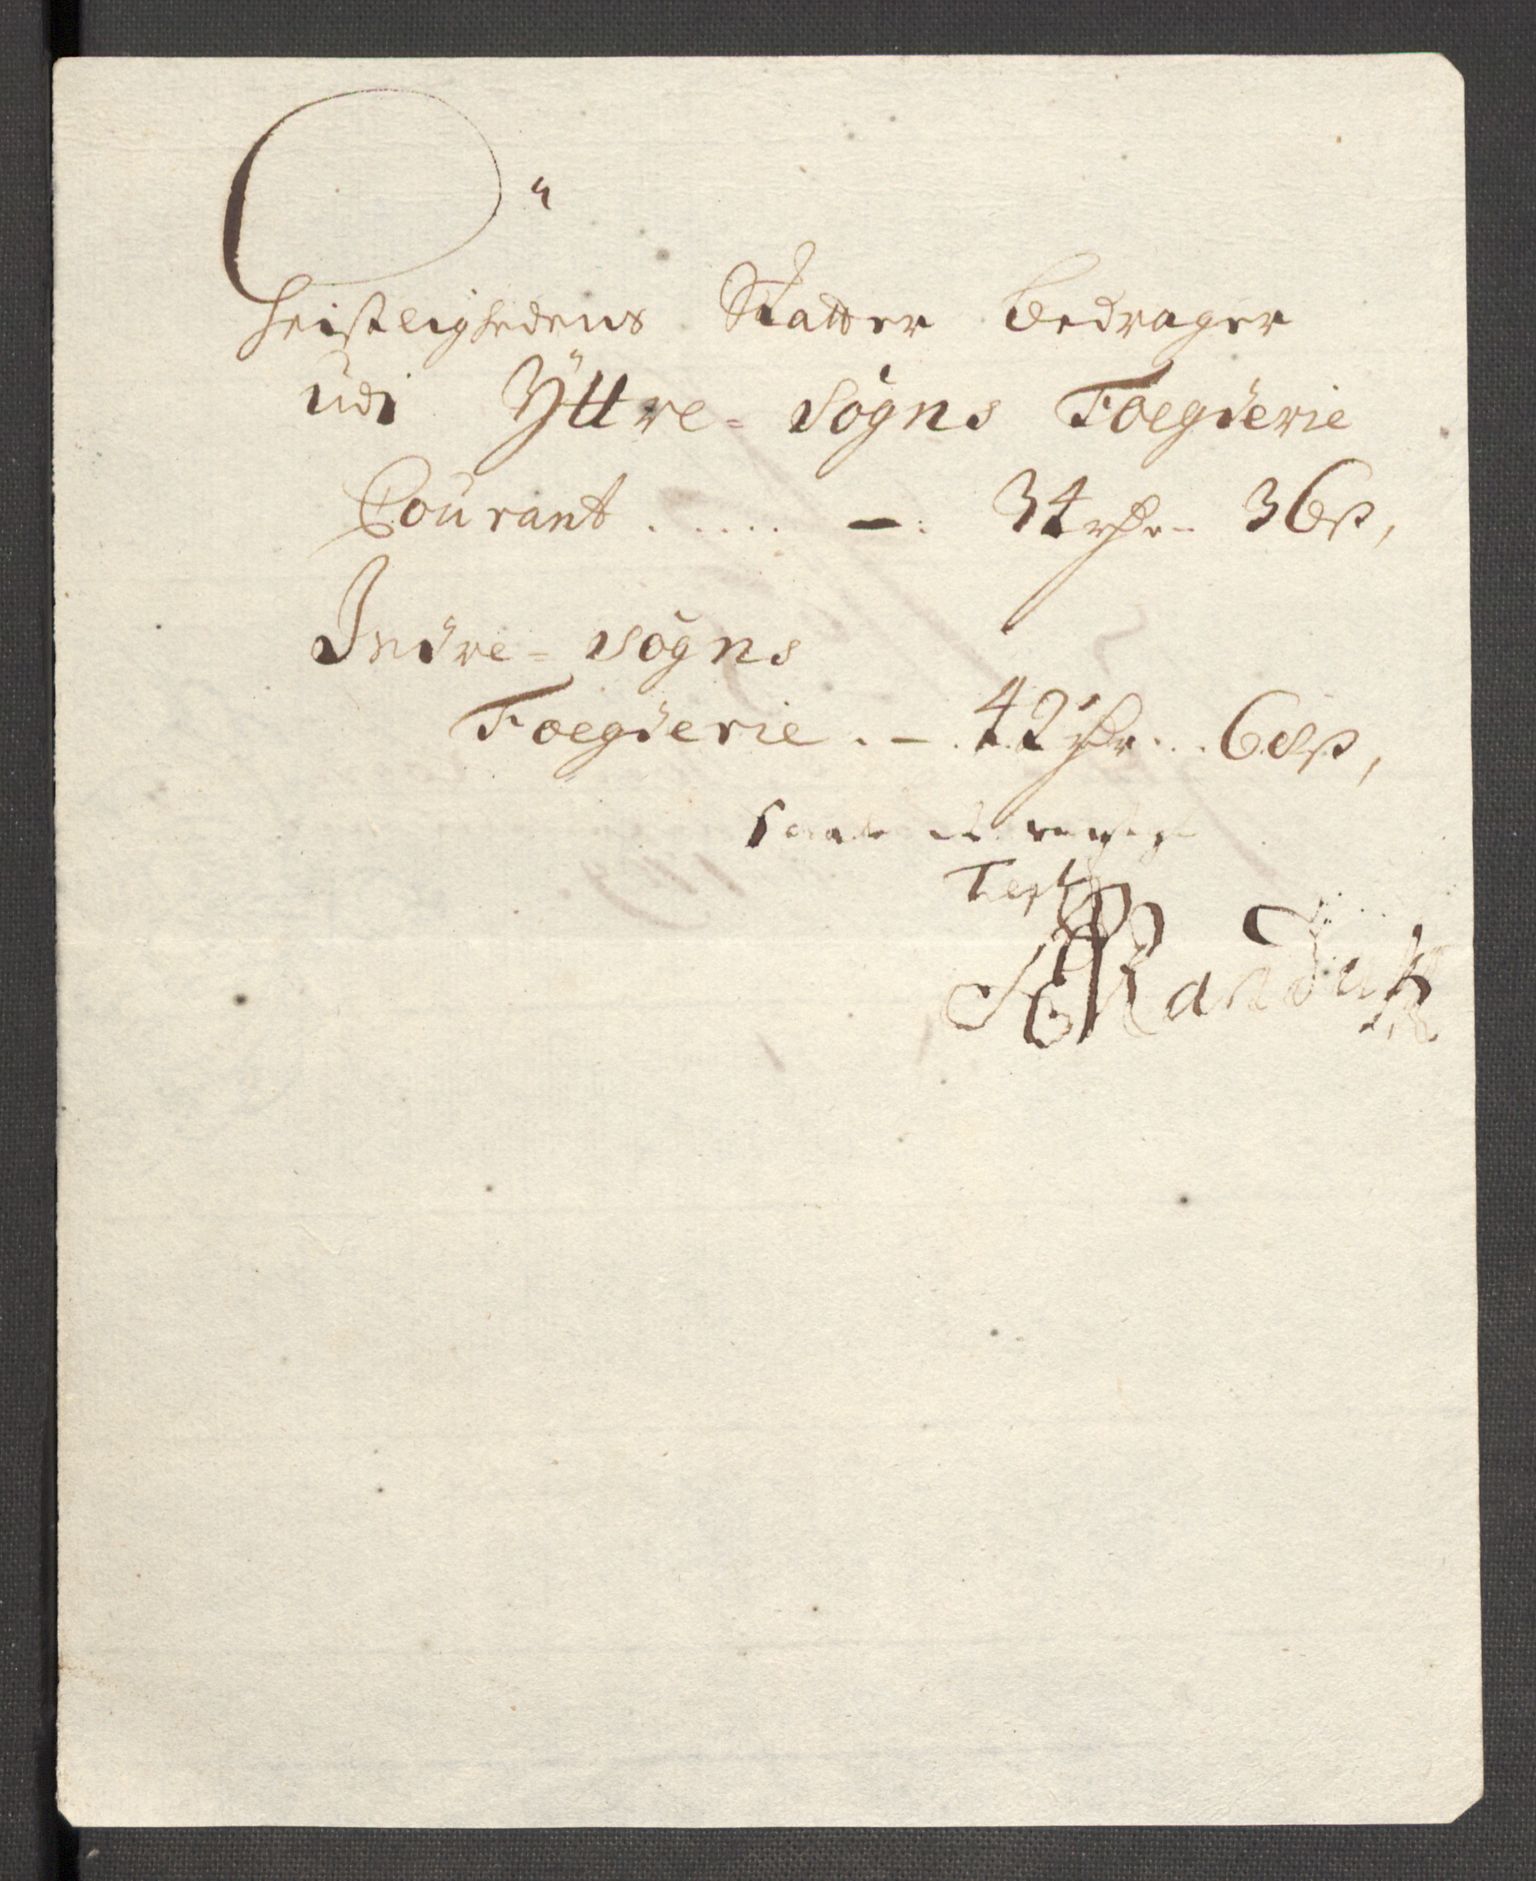 Geistlighedens Skatter bedrager
udi Ÿttre-Sogns Foegderie
Courant ..... — 34 rdr 36ß,
Indre-Sogns
Foegderie .-. 42 rdr .. 68ß,
Test